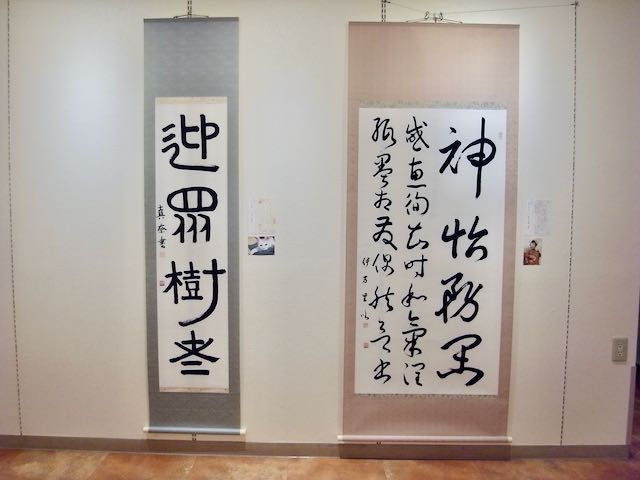 神怡務閑
感恵徇知時和氣潤
紙墨相發偶然欲書
迎樹
真奈書